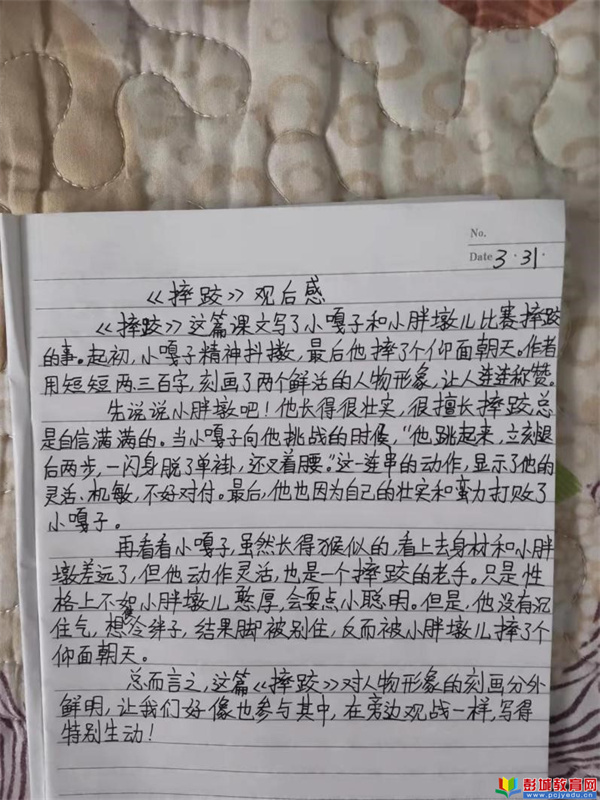 No.
Date 3.31.
《摔跤》观后感
《摔跤》这篇课文写了小嘎子和小胖墩儿比赛摔跤
的事。起初,小嘎子精神抖擞,最后他摔了个仰面朝天。作者
用短短两三百字,刻画了两个鲜活的人物形象,让人连连称赞。
先说说小胖墩吧!他长得很壮实,很擅长摔跤,总
是自信满满的。当小嘎子向他挑战的时候,“他跳起来,立刻退
后两步,一闪身脱了单褂,还叉着腰。”这一连串的动作,显示了他的
灵活、机敏,不好对付。最后,他也因为自己的壮实和蛮力打败了
小嘎子。
再看看小嘎子,虽然长得猴似的,看上去身材和小胖
墩差远了,但他动作灵活,也是一个摔跤的老手。只是性
格上不如小胖墩儿憨厚,会耍点小聪明。但是,他没有沉
住气,想使冷绊子,结果脚被别住,反而被小胖墩儿摔了个
仰面朝天。
总而言之,这篇《摔跤》对人物形象的刻画分外
鲜明,让我们好像也参与其中,在旁边观战一样,写得
特别生动!
彭城教育网
www.pcjyedu.cn